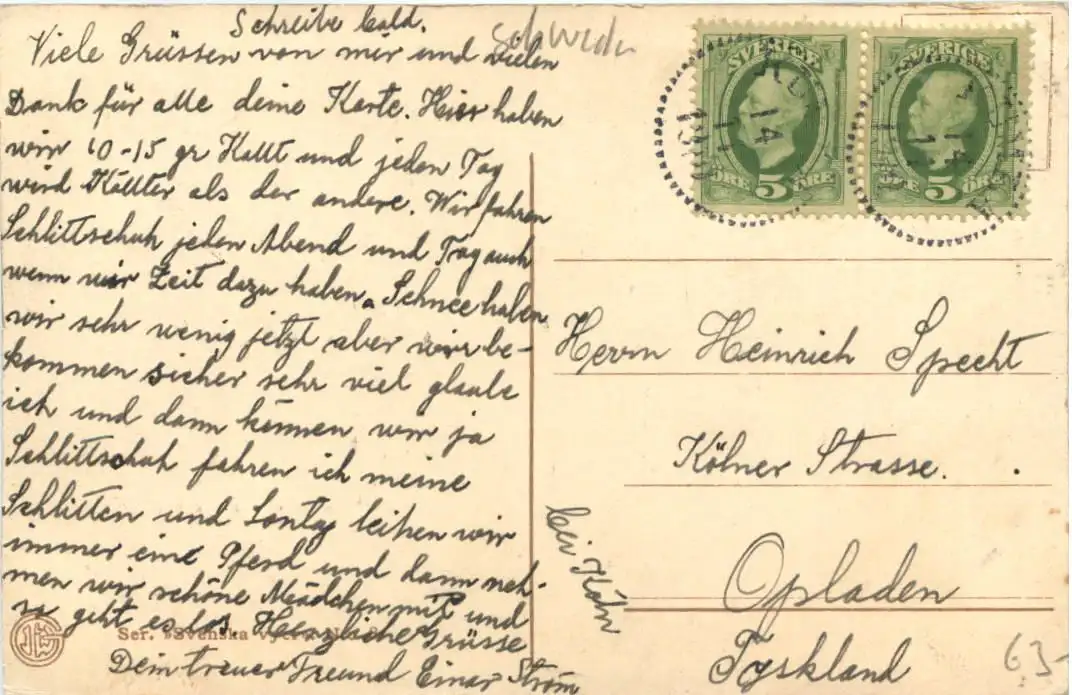 Schreibe bald.
Viele Grüssen von mir und vielen
Dank für alle deine Karte. Hier haben
wir 10-15 gr Kallt und jeden Tag
wird Källter als der andere. Wir fahren
Schlittschuh jeden Abend und Tag auch
wenn wir Zeit dazu haben. Schnee haben
wir sehr wenig jetzt aber wir be-
kommen sicher sehr viel glaube
ich und dann können wir ja
Schlittschuh fahren ich meine
Schlitten und Sontag leihen wir
immer eine Pferd und dann neh-
men wir schöne Mädchen mit und
so geht es los Herzliche Grüsse
Dein treuer Freund Einar Ström
Ser. Svenska
SVERIGE
ÖRE 5 ÖRE
SVERIGE
ÖRE 5 ÖRE
14
14
Herrn Heinrich Specht
Kölner Strasse.
Opladen
bei Köln
Tyskland
63-